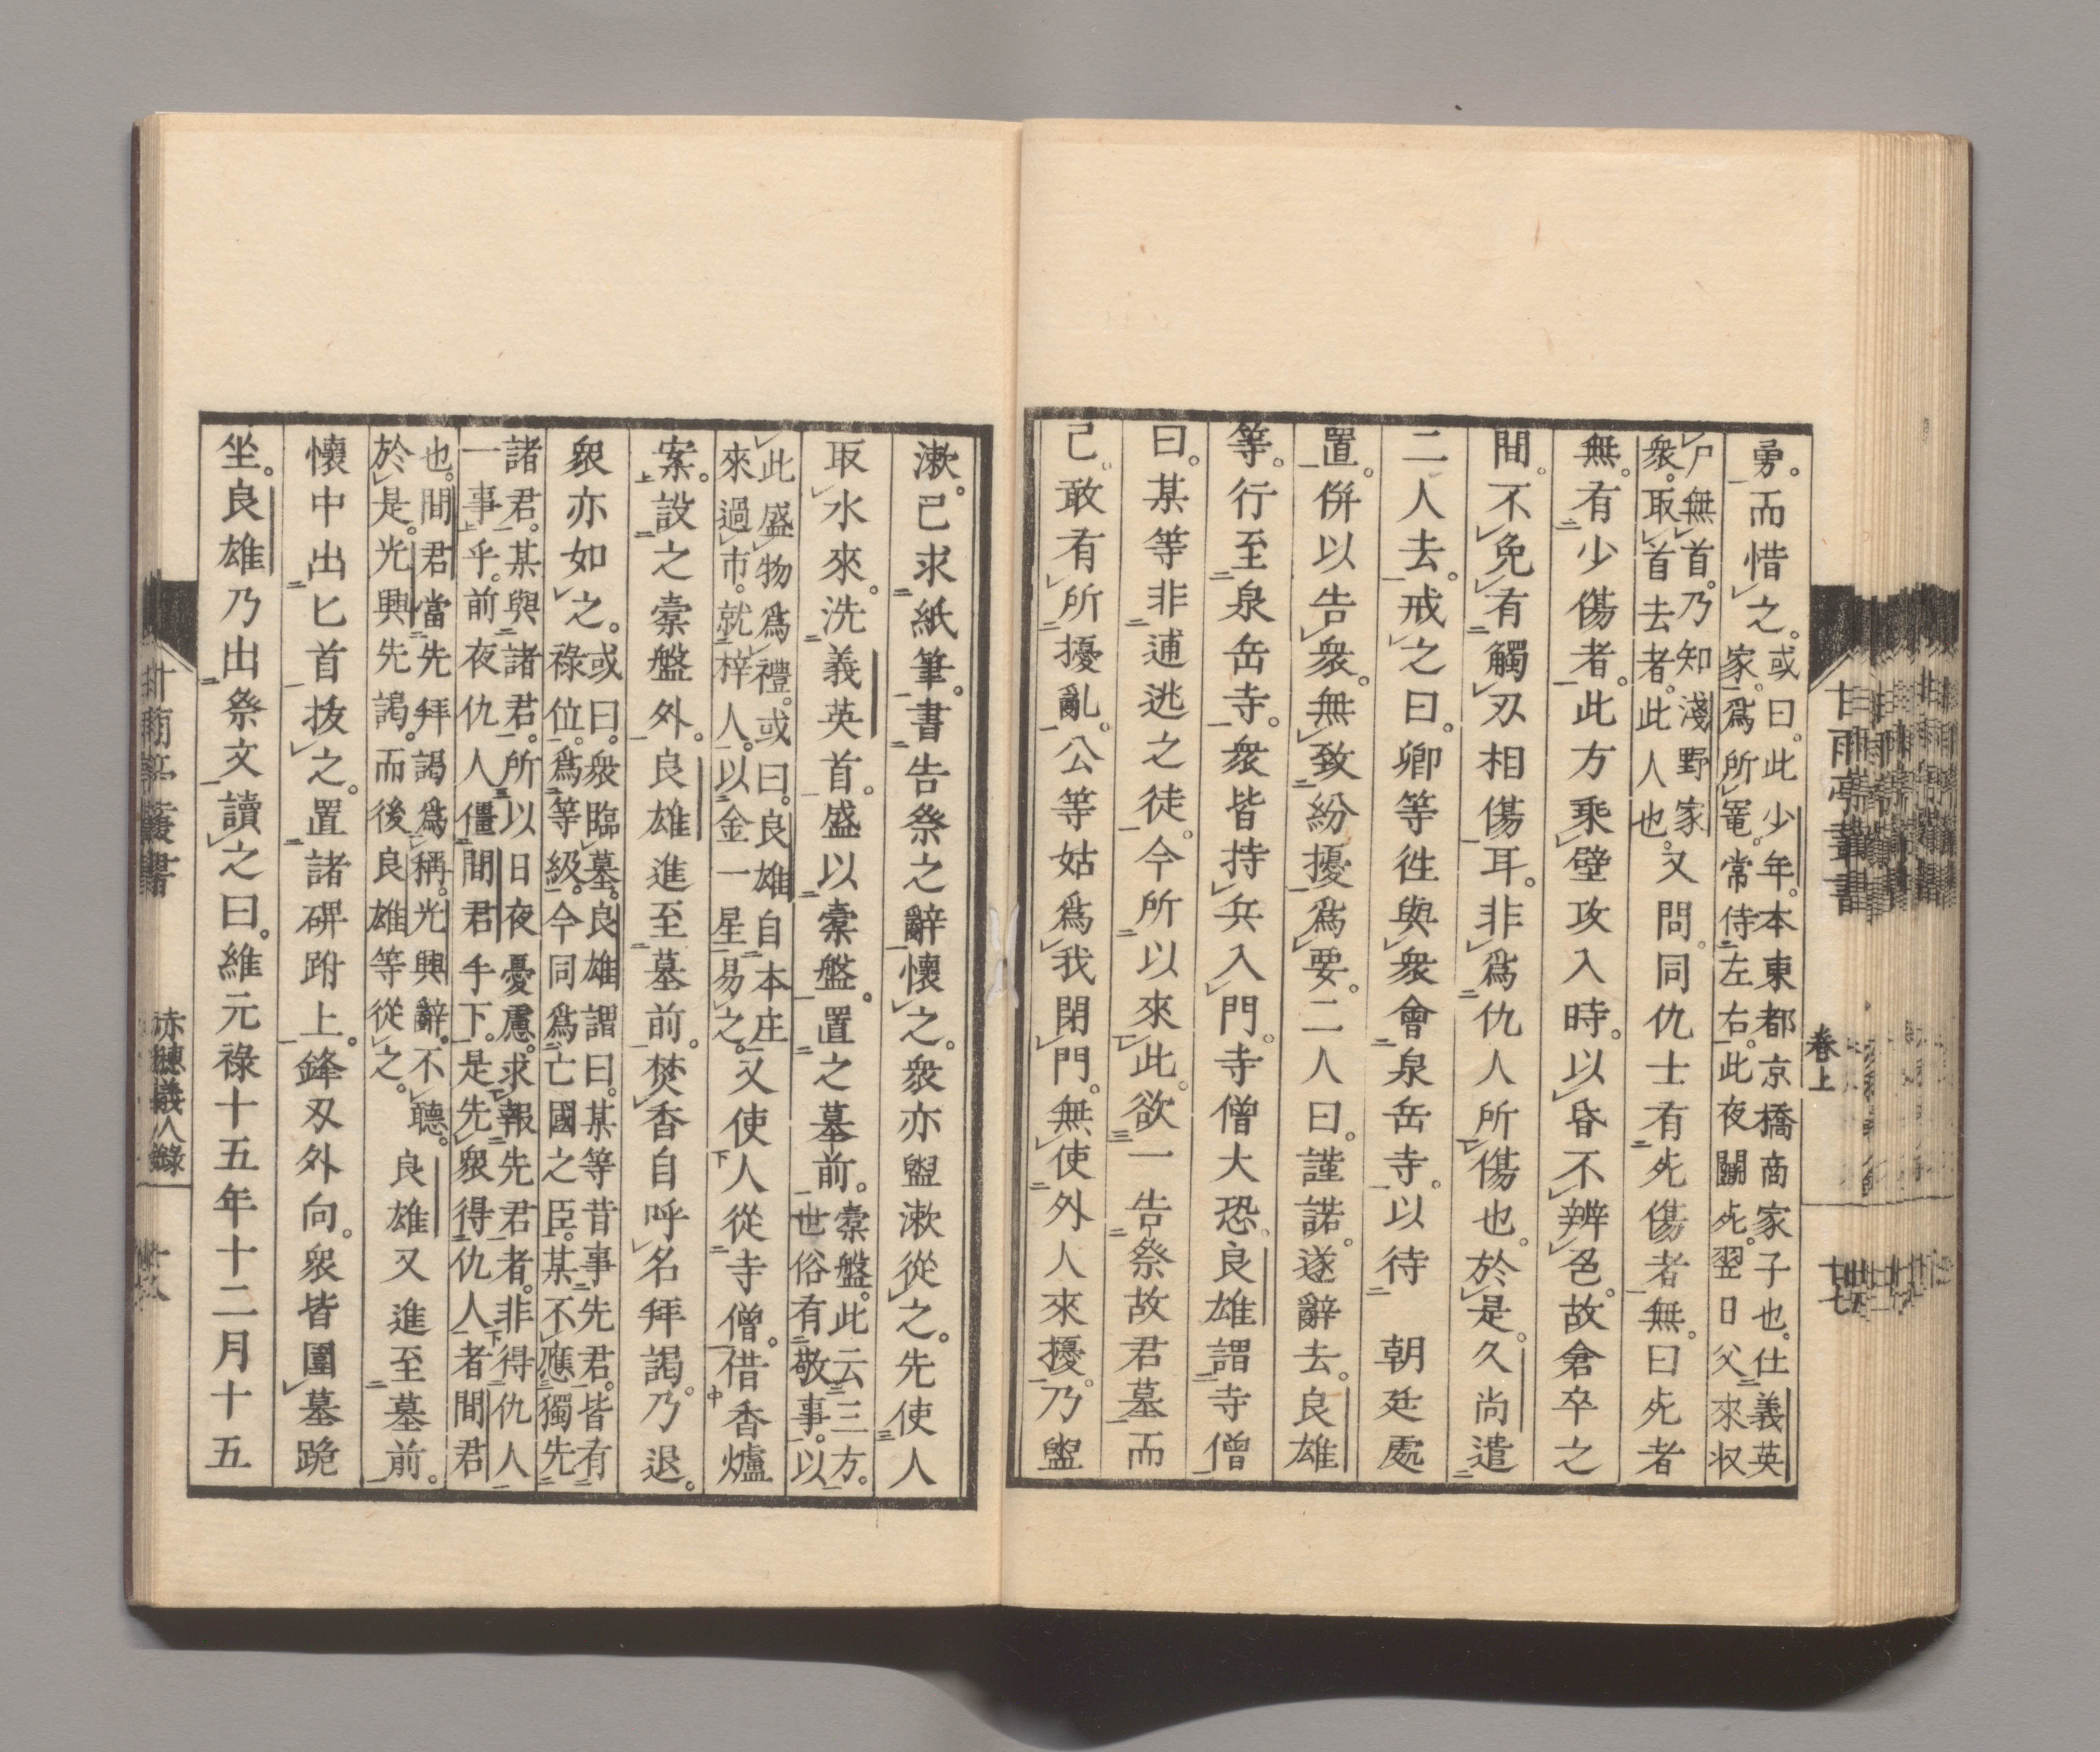 勇。而惜之。或曰。此少年。本東都京橋商家子也。仕義英
家。爲所寵。常侍左右。此夜鬭死。翌日父來収
尸無首。乃知淺野家
衆。取首去者。此人也。又問。同仇士有死傷者無。曰死者
無。有少傷者。此方乘壁攻入時。以昏不辨色。故倉卒之
間。不免有觸刃相傷耳。非爲仇人所傷也。於是。久尚遣
二人去。戒之曰。卿等徃與衆會泉岳寺。以待 朝廷處
置。併以告衆。無致紛擾爲要。二人曰。謹諾。遂辭去。良雄
等。行至泉岳寺。衆皆持兵入門。寺僧大恐。良雄謂寺僧
曰。某等非逋逃之徒。今所以來此。欲一告祭故君墓而
已。敢有所擾亂。公等姑爲我閉門。無使外人來擾。乃盥
甘雨亭叢書
卷上
十七
漱。已求紙筆。書告祭之辭懷之。衆亦盥漱從之。先使人
取水來。洗義英首。盛以槖盤。置之墓前。槖盤。此云三方。
世俗有敬事。以
此盛物爲禮。或曰。良雄自本庄
來過市。就梓人。以金一星易之。又使人從寺僧。借香爐
案。設之槖盤外。良雄進至墓前。焚香自呼名拜謁。乃退。
衆亦如之。或曰。衆臨墓。良雄謂曰。某等昔事先君。皆有
祿位。爲等級。今同爲亡國之臣。某不應獨先
諸君。某與諸君。所以日夜憂慮。求報先君者。非得仇人
一事乎。前夜仇人僵間君手下。是先衆得仇人者間君
也。間君當先拜謁爲稱。光興辭。不聽。
於是。光興先謁。而後良雄等從之。良雄又進至墓前。
懷中出匕首拔之。置諸碑跗上。鋒刃外向。衆皆圍墓跪
坐。良雄乃出祭文讀之曰。維元祿十五年十二月十五
赤穗義人錄